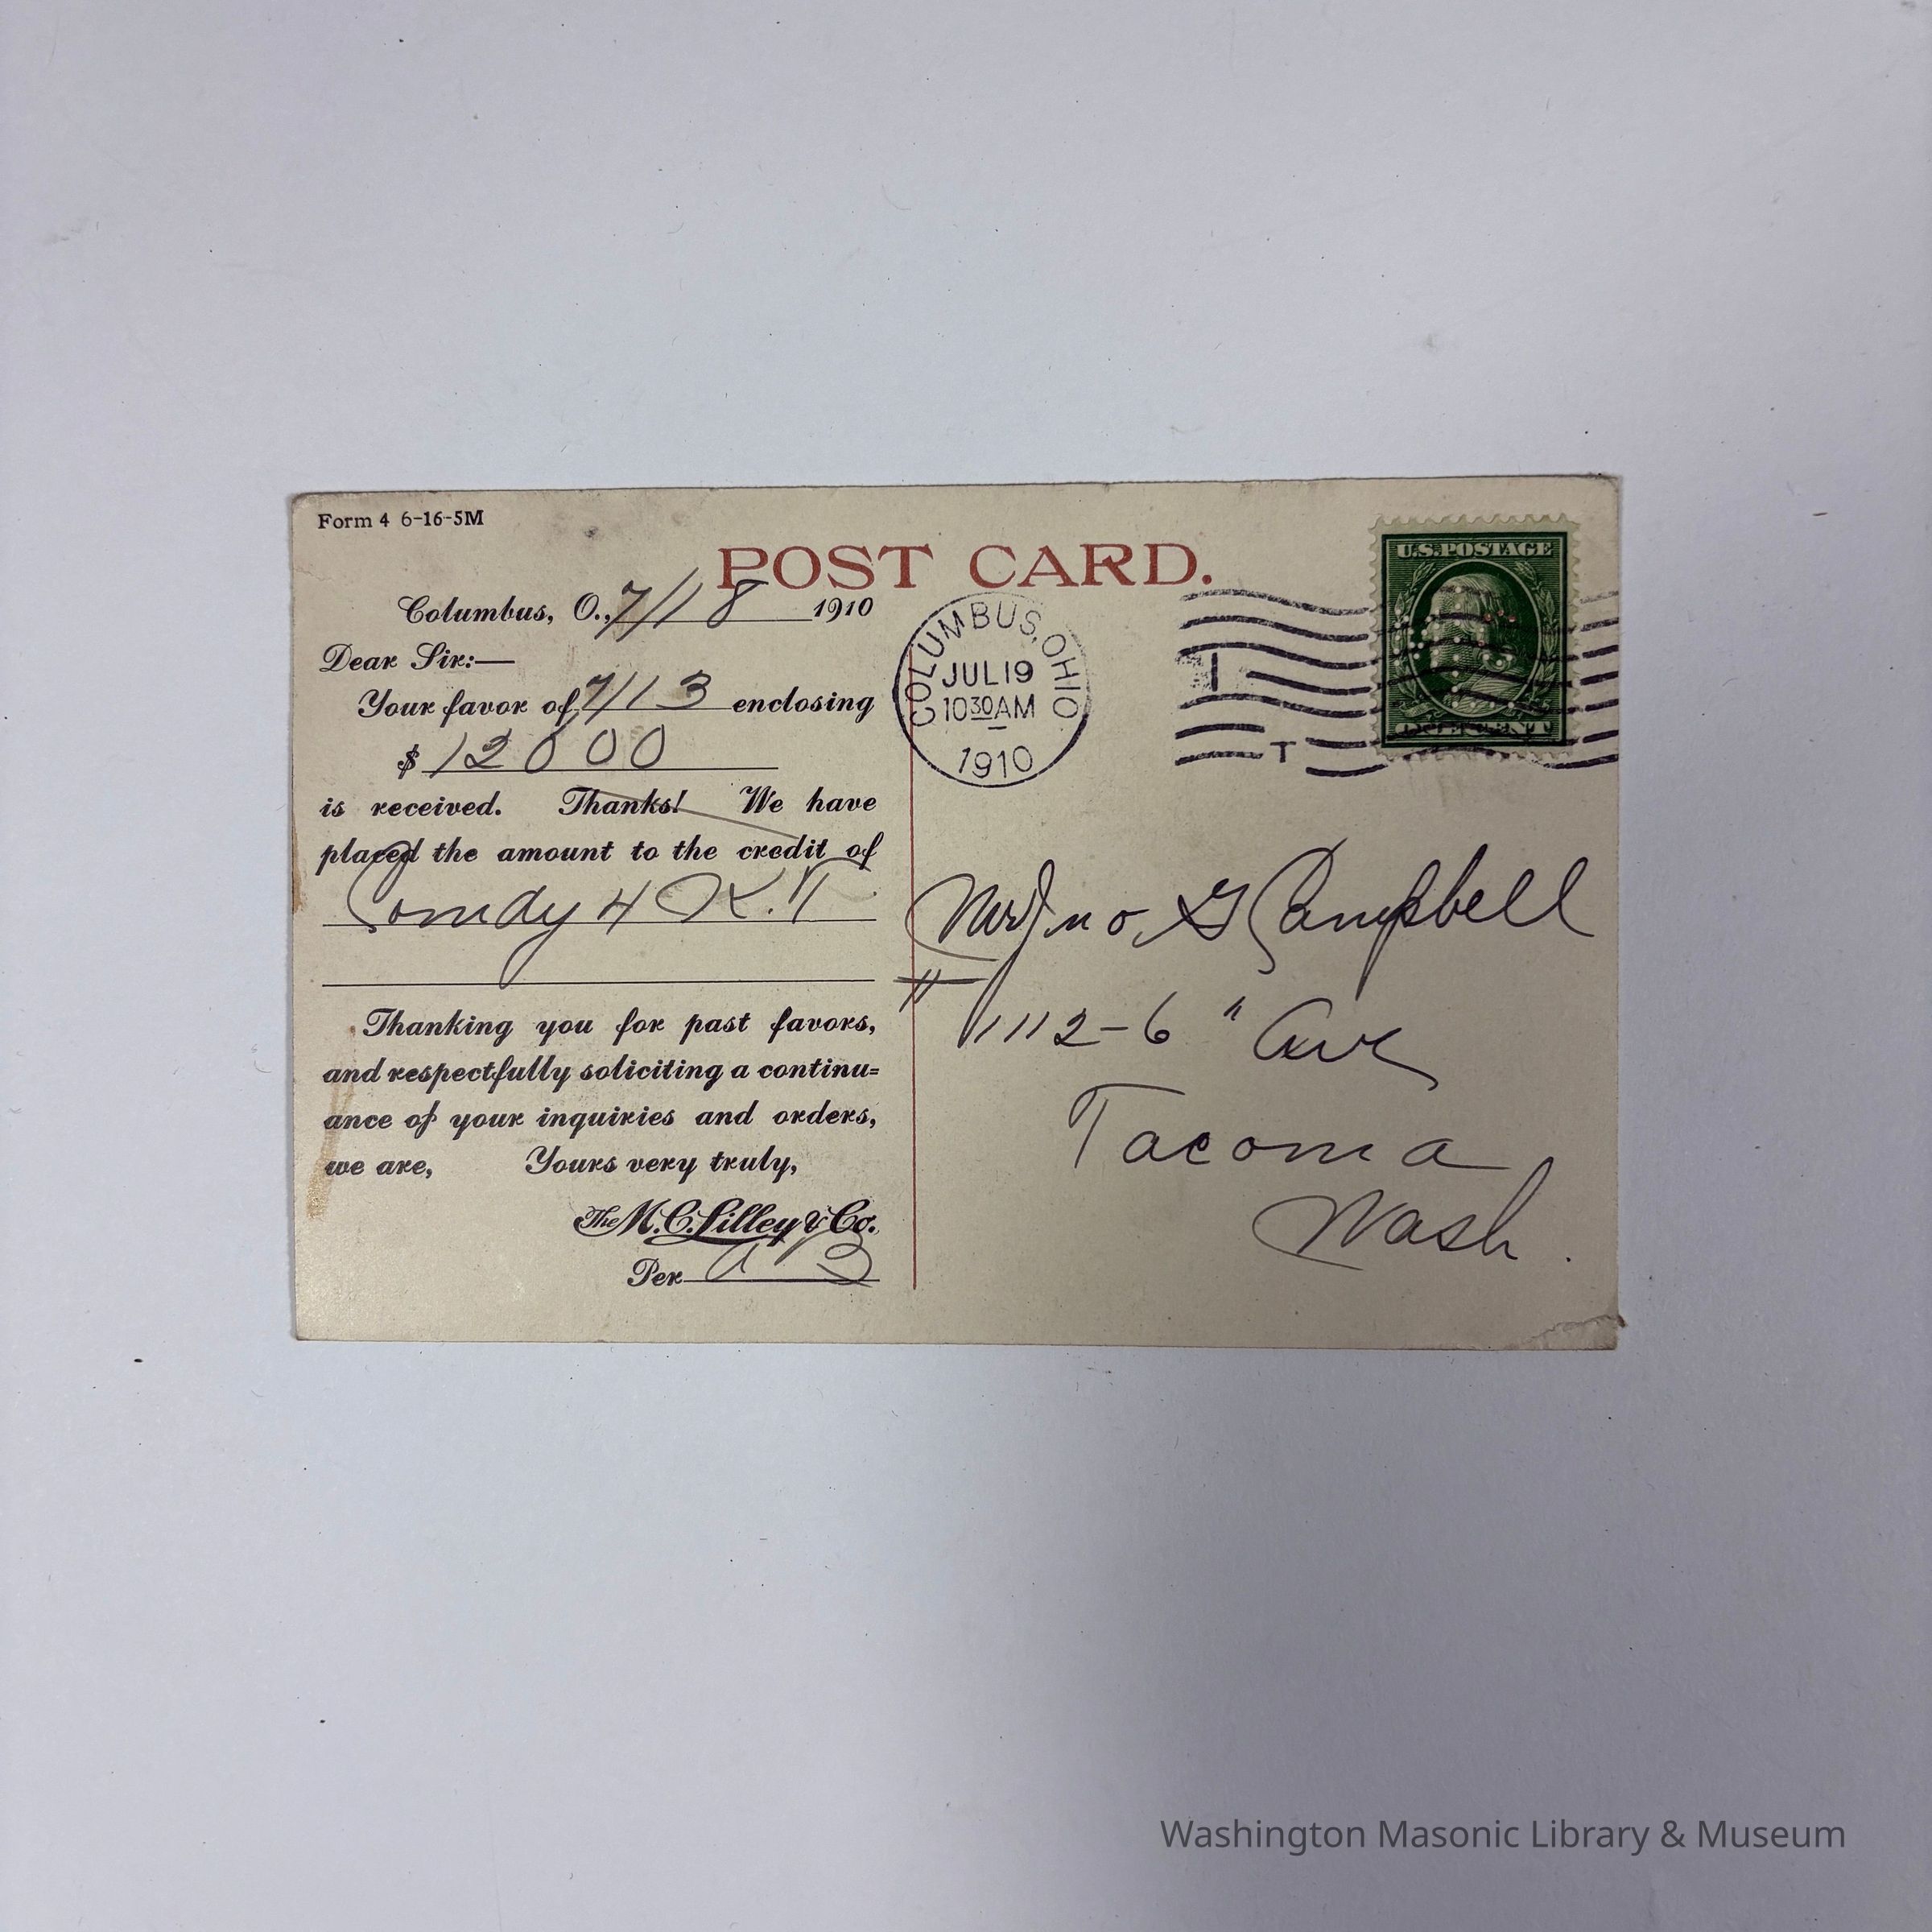 Form 4 6-16-5M
POST CARD.
Columbus, O., 7/18 1910
Dear Sir:—
Your favor of 7/13 enclosing
$ 120 00
is received. Thanks! We have
placed the amount to the credit of
Comdy 4 K.T.
Thanking you for past favors,
and respectfully soliciting a continu=
ance of your inquiries and orders,
we are, Yours very truly,
The M.C. Lilley & Co.
Per
COLUMBUS, OHIO
JUL 19
10 30 AM
1910
1
T
U.S. POSTAGE
Mr Jno. G Campbell
1112-6 " Ave
Tacoma
Wash.
Washington Masonic Library & Museum